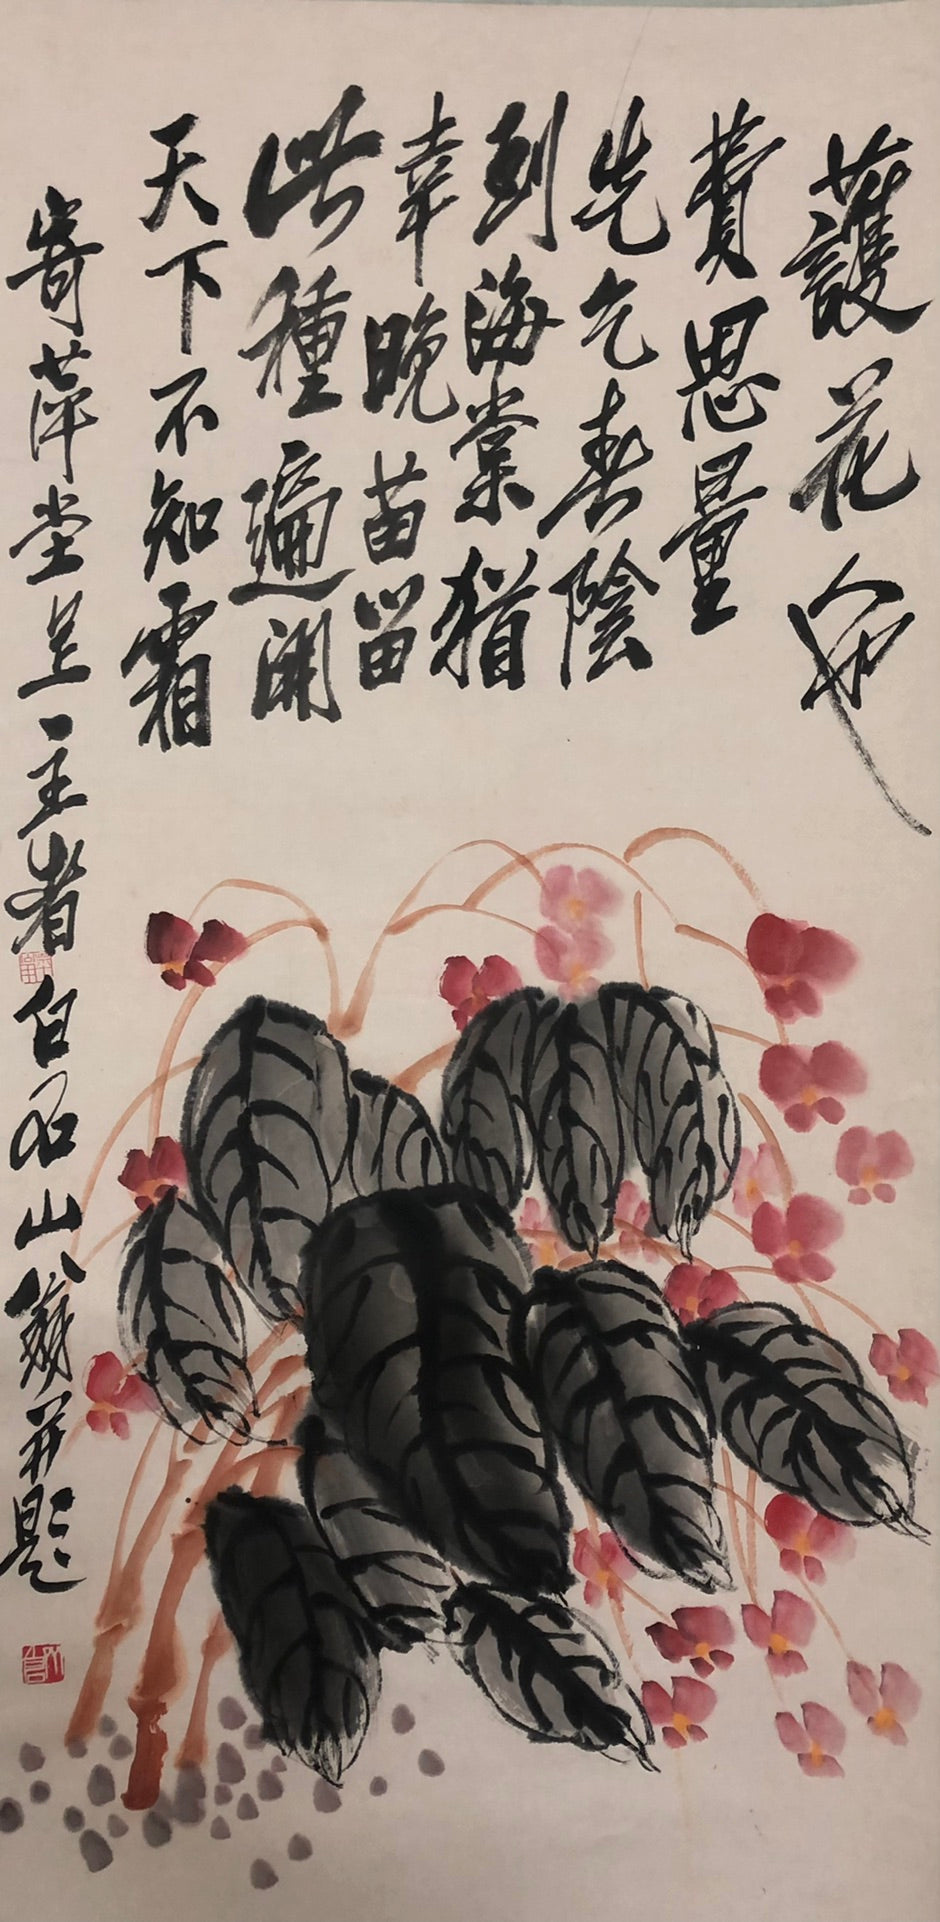 護花
費思量
先乞春陰
到海棠猶
幸晚苗留
此種遍開
天下不知霜
寄萍堂主者白石山翁并題